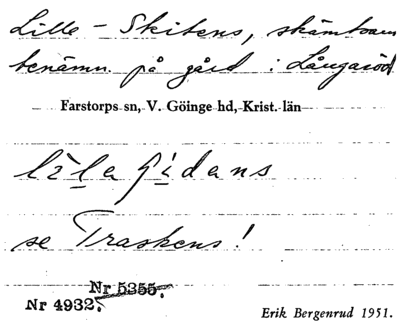 Lille-Skitens, skämtsam
benämn. på gård i Långaröd
Farstorps sn, V. Göinge hd, Krist. län
se Traskens!
Nr 5355.
Nr 4932.
Erik Bergenrud 1951.